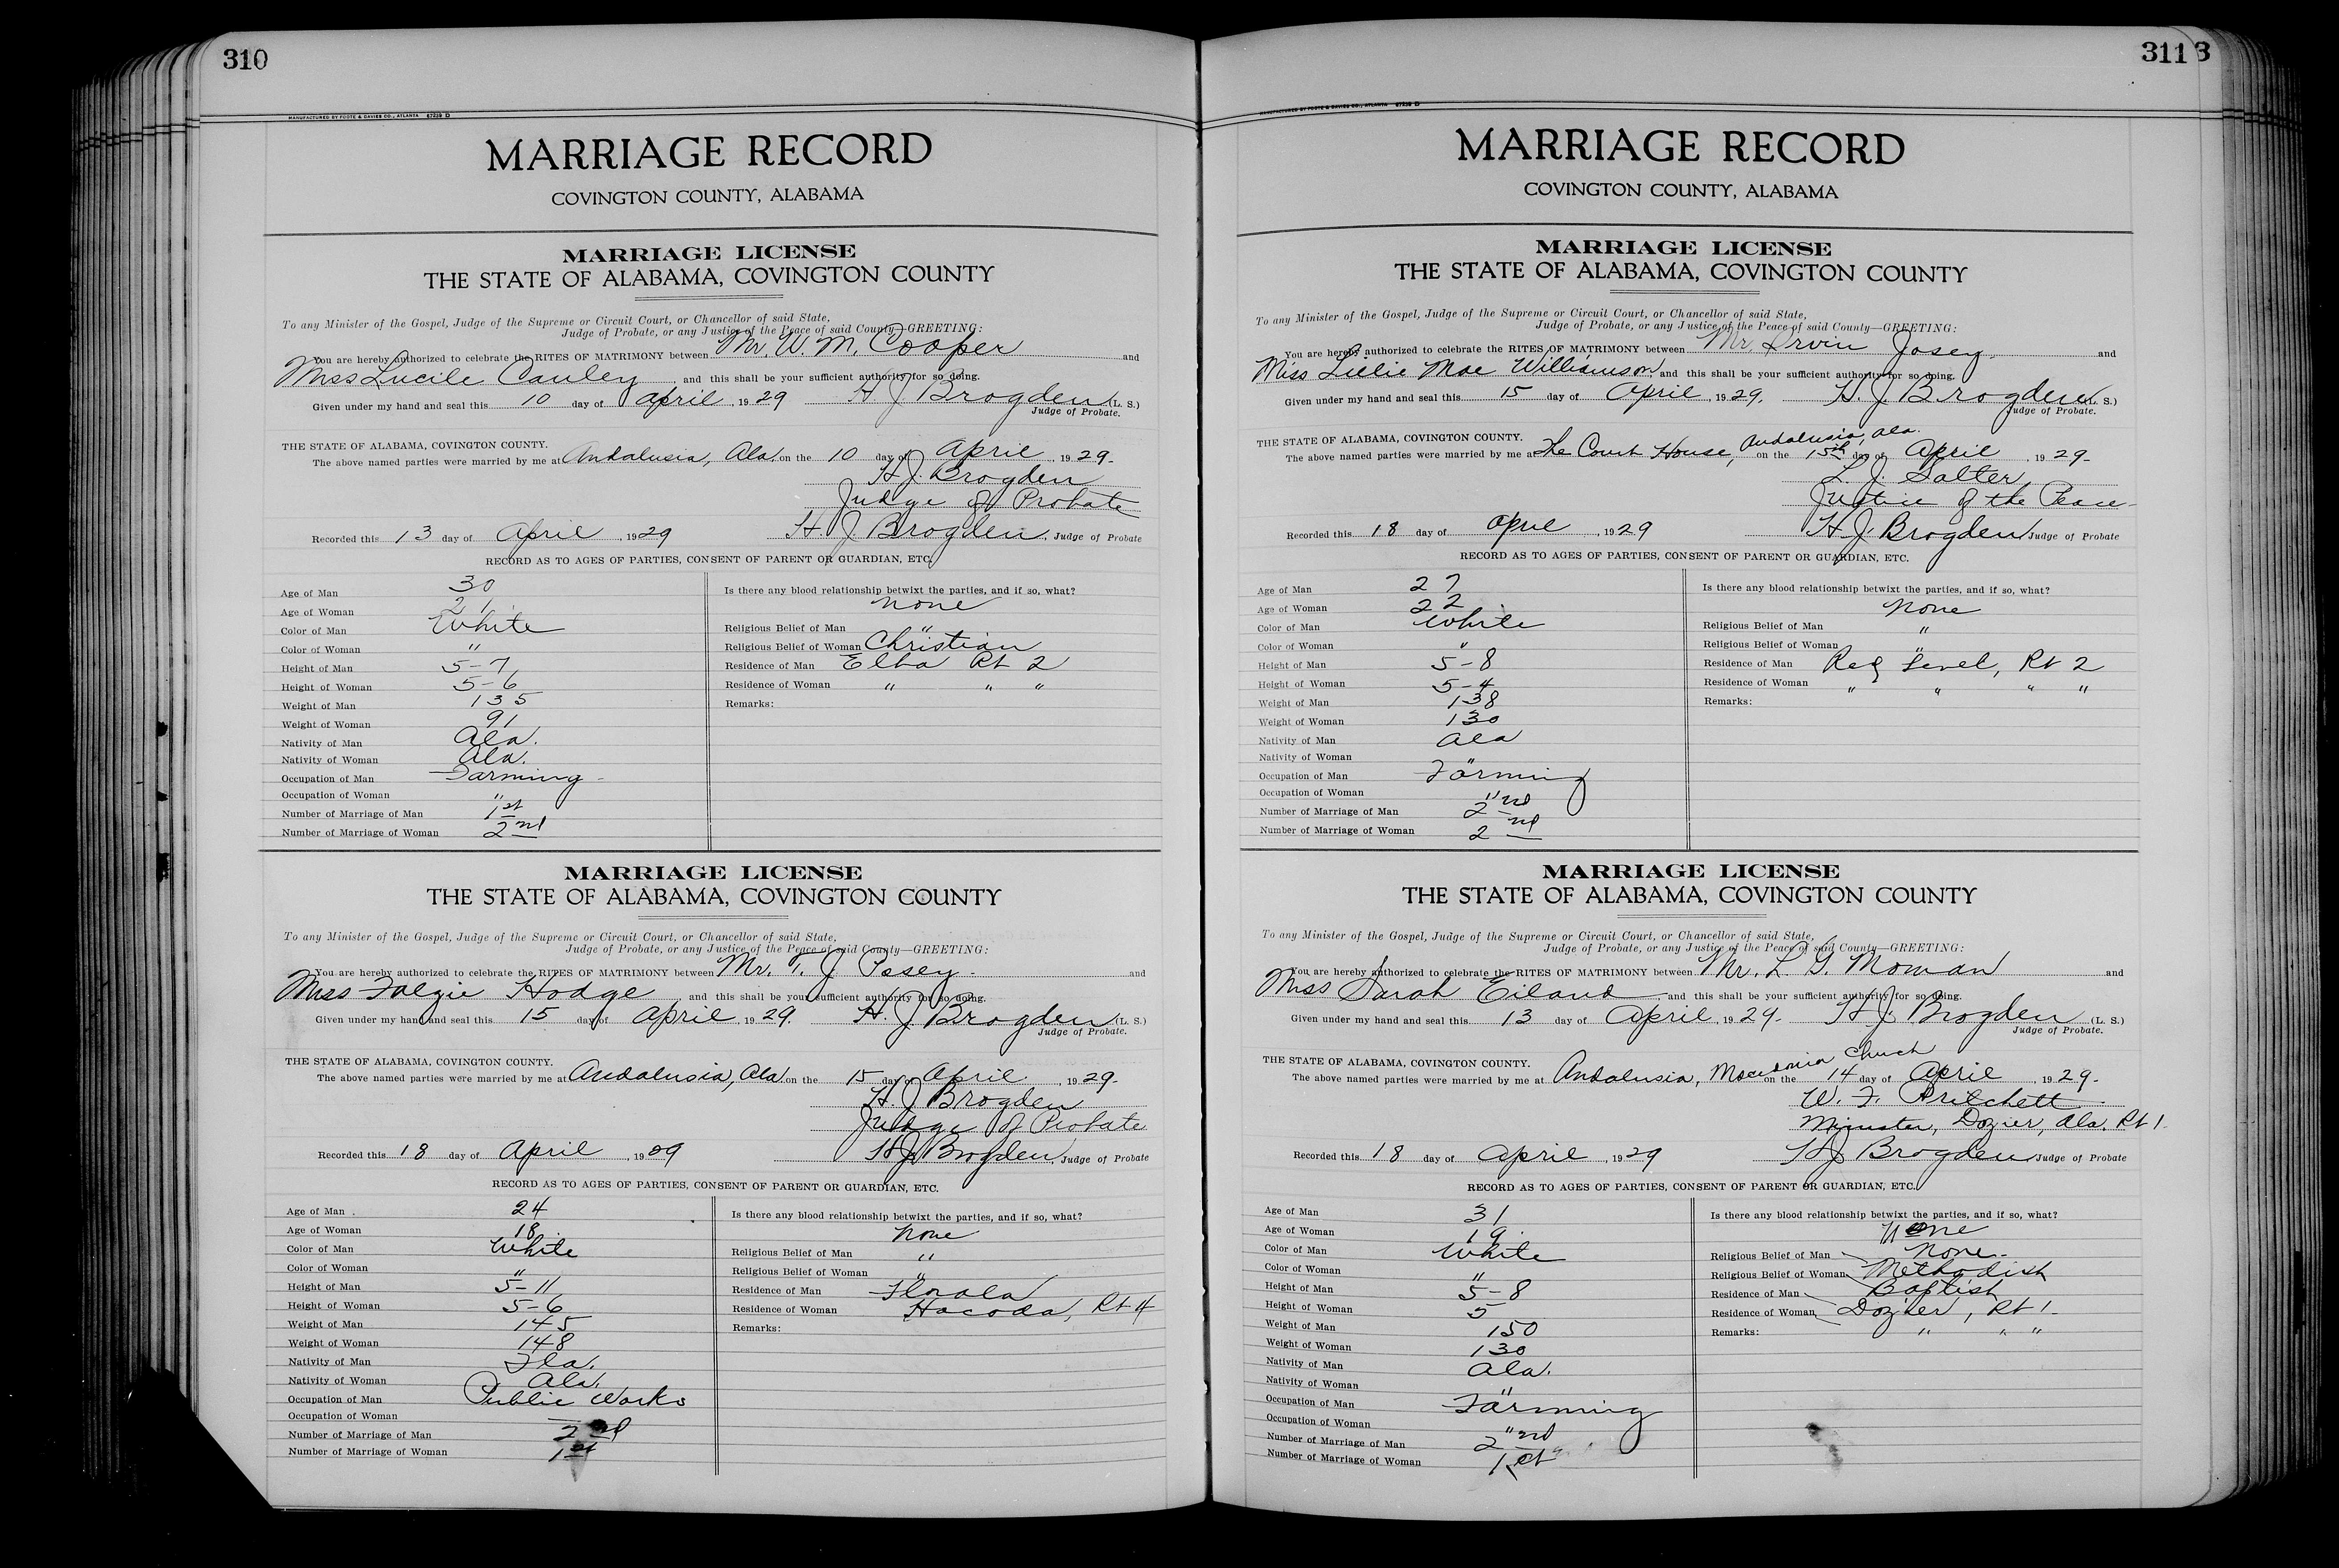 310
MANUFACTURED BY FOOTE & DAVIES CO., ATLANTA 67239 D
MARRIAGE RECORD
COVINGTON COUNTY, ALABAMA
MARRIAGE LICENSE
THE STATE OF ALABAMA, COVINGTON COUNTY
To any Minister of the Gospel, Judge of the Supreme or Circuit Court, or Chancellor of said State,
Judge of Probate, or any Justice of the Peace of said County—GREETING:
You are hereby authorized to celebrate the RITES OF MATRIMONY between Mr. W. M. Cooper and
Miss Lucile Cauley, and this shall be your sufficient authority for so doing.
Given under my hand and seal this 10 day of April, 1929 H J Brogden (L. S.)
Judge of Probate.
THE STATE OF ALABAMA, COVINGTON COUNTY.
The above named parties were married by me at Andalusia, Ala. on the 10 day of April, 1929.
H. J. Brogden
Judge of Probate
Recorded this 13 day of April, 1929 H. J. Brogden Judge of Probate
RECORD AS TO AGES OF PARTIES, CONSENT OF PARENT OR GUARDIAN, ETC.
Age of Man 30
Age of Woman 21
Color of Man White
Color of Woman "
Height of Man 5-7
Height of Woman 5-6
Weight of Man 135
Weight of Woman 91
Nativity of Man Ala.
Nativity of Woman Ala.
Occupation of Man Farming
Occupation of Woman "
Number of Marriage of Man 1st
Number of Marriage of Woman 2nd
Is there any blood relationship betwixt the parties, and if so, what?
none
Religious Belief of Man "
Religious Belief of Woman Christian
Residence of Man Elba Rt 2
Residence of Woman " " "
Remarks:
MARRIAGE LICENSE
THE STATE OF ALABAMA, COVINGTON COUNTY
To any Minister of the Gospel, Judge of the Supreme or Circuit Court, or Chancellor of said State,
Judge of Probate, or any Justice of the Peace of said County—GREETING:
You are hereby authorized to celebrate the RITES OF MATRIMONY between Mr. T. J. Posey and
Miss Hodge, and this shall be your sufficient authority for so doing.
Given under my hand and seal this 15 day of April, 1929. H. J. Brogden (L. S.)
Judge of Probate.
THE STATE OF ALABAMA, COVINGTON COUNTY.
The above named parties were married by me at Andalusia, Ala. on the 15 day of April, 1929.
H. J. Brogden
Judge of Probate
Recorded this 18 day of April, 1929 H J Brogden, Judge of Probate
RECORD AS TO AGES OF PARTIES, CONSENT OF PARENT OR GUARDIAN, ETC.
Age of Man 24
Age of Woman 18
Color of Man White
Color of Woman "
Height of Man 5-11
Height of Woman 5-6
Weight of Man 145
Weight of Woman 148
Nativity of Man Fla.
Nativity of Woman Ala.
Occupation of Man Public Works
Occupation of Woman
Number of Marriage of Man 2nd
Number of Marriage of Woman 1st
Is there any blood relationship betwixt the parties, and if so, what?
none
Religious Belief of Man "
Religious Belief of Woman "
Residence of Man Florala
Residence of Woman Hacoda, Rt 4
Remarks:
311 3
MANUFACTURED BY FOOTE & DAVIES CO., ATLANTA 67239 D
MARRIAGE RECORD
COVINGTON COUNTY, ALABAMA
MARRIAGE LICENSE
THE STATE OF ALABAMA, COVINGTON COUNTY
To any Minister of the Gospel, Judge of the Supreme or Circuit Court, or Chancellor of said State,
Judge of Probate, or any Justice of the Peace of said County—GREETING:
You are hereby authorized to celebrate the RITES OF MATRIMONY between Mr. Irvin Josey and
Miss Lillie Mae Williamson, and this shall be your sufficient authority for so doing.
Given under my hand and seal this 15 day of April, 1929. H. J. Brogden (L. S.)
Judge of Probate.
THE STATE OF ALABAMA, COVINGTON COUNTY.
The above named parties were married by me at The Court House, Andalusia, Ala. on the 15th day of April, 1929.
L. J. Salter
Justice of the Peace
Recorded this 18 day of April, 1929 H. J. Brogden Judge of Probate
RECORD AS TO AGES OF PARTIES, CONSENT OF PARENT OR GUARDIAN, ETC.
Age of Man 27
Age of Woman 22
Color of Man White
Color of Woman "
Height of Man 5-8
Height of Woman 5-4
Weight of Man 138
Weight of Woman 130
Nativity of Man Ala
Nativity of Woman "
Occupation of Man Farming
Occupation of Woman "
Number of Marriage of Man 2nd
Number of Marriage of Woman 2nd
Is there any blood relationship betwixt the parties, and if so, what?
None
Religious Belief of Man "
Religious Belief of Woman "
Residence of Man Red Level, Rt 2
Residence of Woman " " " "
Remarks:
MARRIAGE LICENSE
THE STATE OF ALABAMA, COVINGTON COUNTY
To any Minister of the Gospel, Judge of the Supreme or Circuit Court, or Chancellor of said State,
Judge of Probate, or any Justice of the Peace of said County—GREETING:
You are hereby authorized to celebrate the RITES OF MATRIMONY between Mr. L. G. Moman and
Miss Sarah Eiland, and this shall be your sufficient authority for so doing.
Given under my hand and seal this 13 day of April, 1929. H J. Brogden (L. S.)
Judge of Probate.
THE STATE OF ALABAMA, COVINGTON COUNTY.
The above named parties were married by me at Andalusia, Macedonia Church on the 14 day of April, 1929.
W. F. Pritchett
Minister, Dozier, Ala. Rt 1.
Recorded this 18 day of April, 1929 H J Brogden Judge of Probate
RECORD AS TO AGES OF PARTIES, CONSENT OF PARENT OR GUARDIAN, ETC.
Age of Man 31
Age of Woman 19
Color of Man White
Color of Woman "
Height of Man 5-8
Height of Woman 5
Weight of Man 150
Weight of Woman 130
Nativity of Man Ala.
Nativity of Woman "
Occupation of Man Farming
Occupation of Woman "
Number of Marriage of Man 2nd
Number of Marriage of Woman 1st
Is there any blood relationship betwixt the parties, and if so, what?
None
Religious Belief of Man None
Religious Belief of Woman Methodist
Residence of Man Baptist
Residence of Woman Dozier, Rt 1.
Remarks: " " "